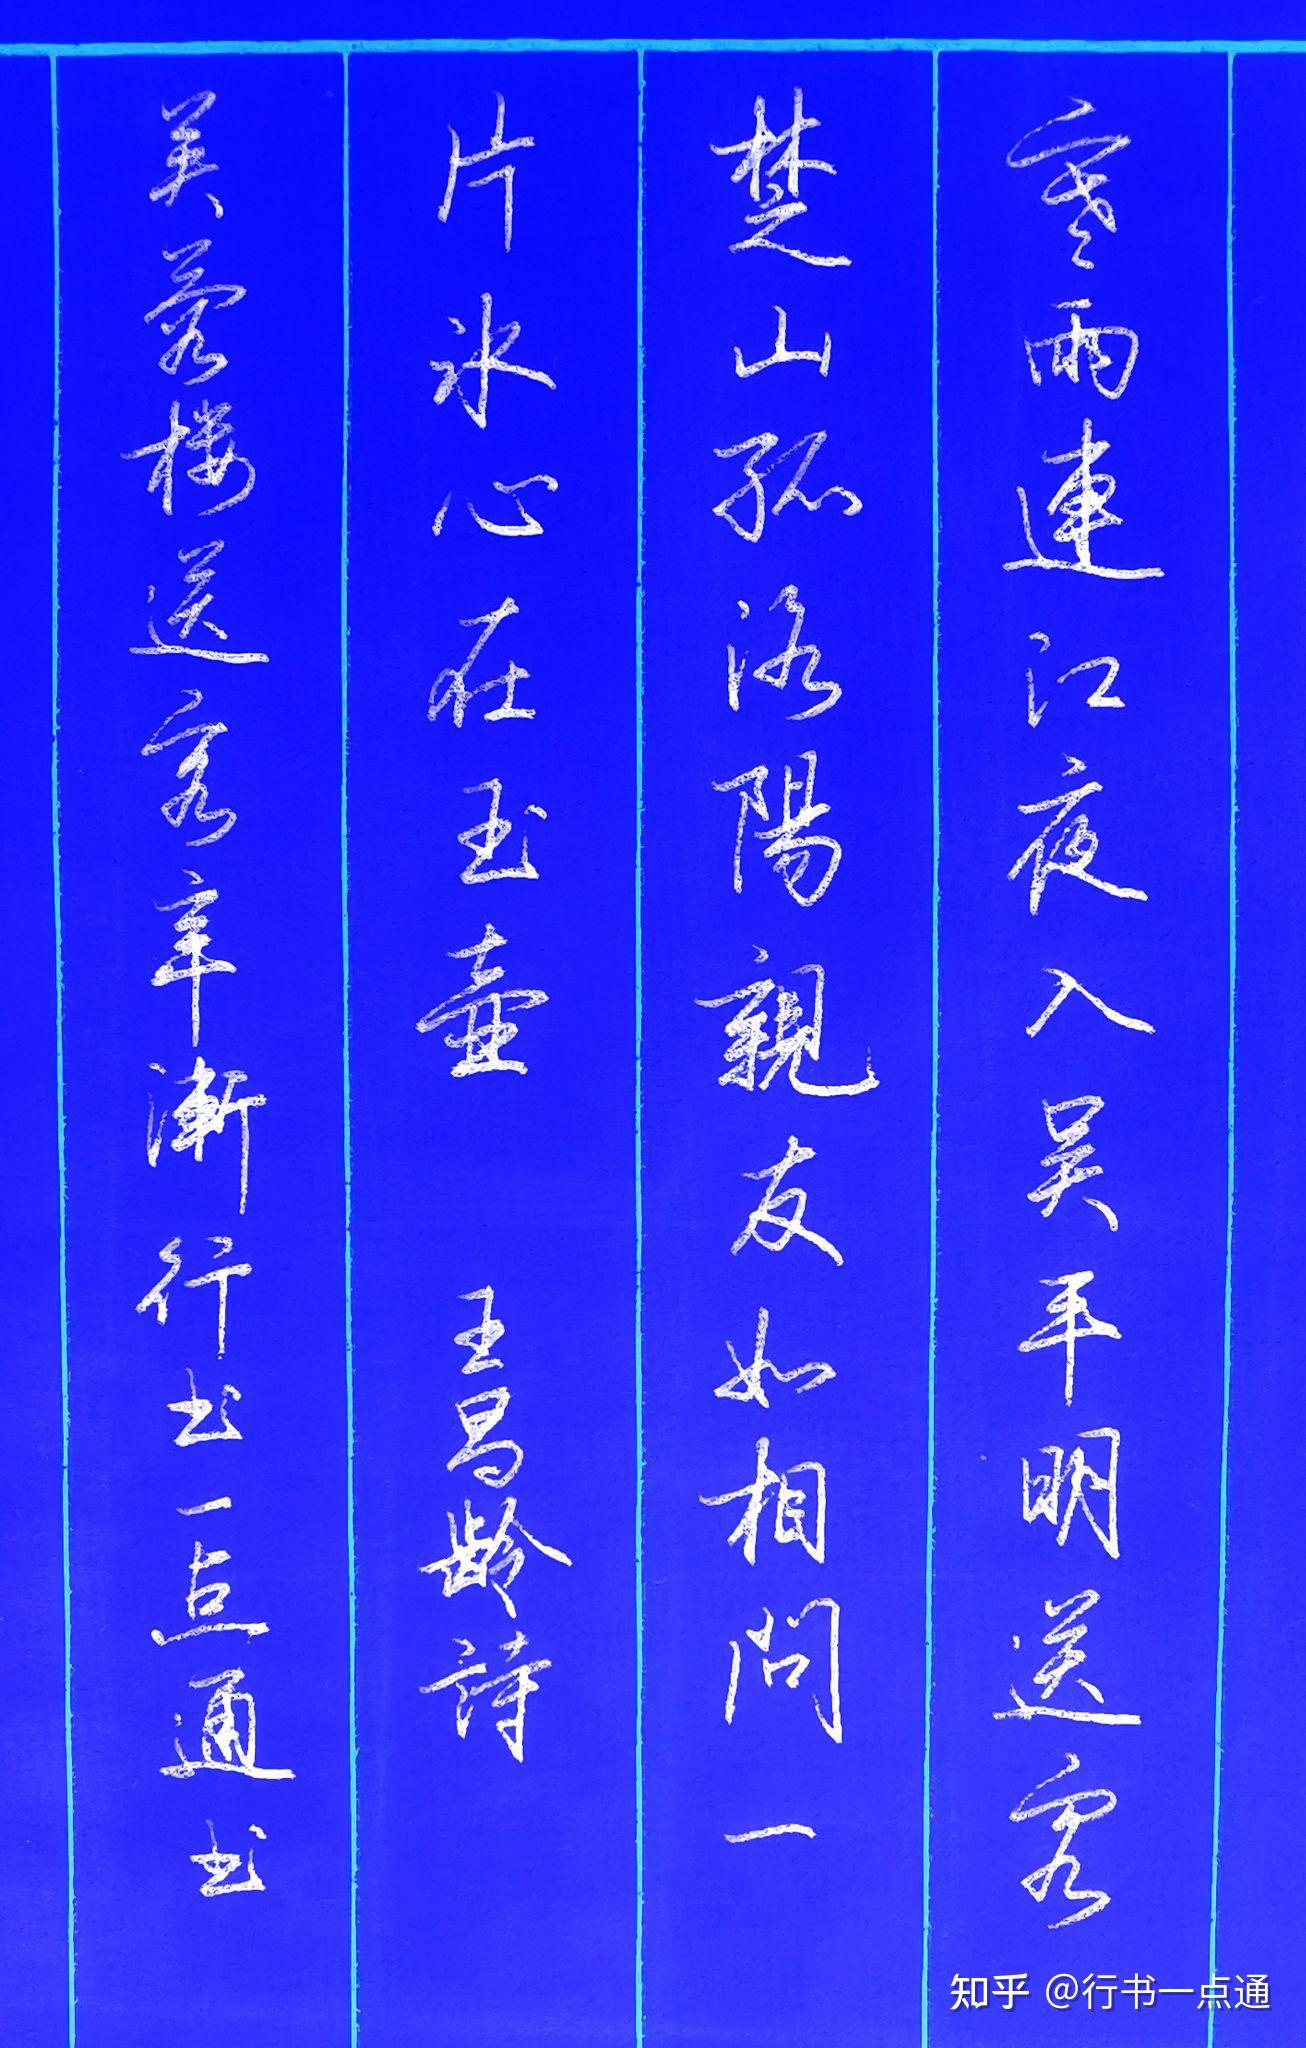 寒雨連江夜入吴平明送客
楚山孤洛陽親友如相問一
片氷心在玉壺 王昌龄詩
芙蓉楼送客辛漸行书一点通书
知乎 @行书一点通